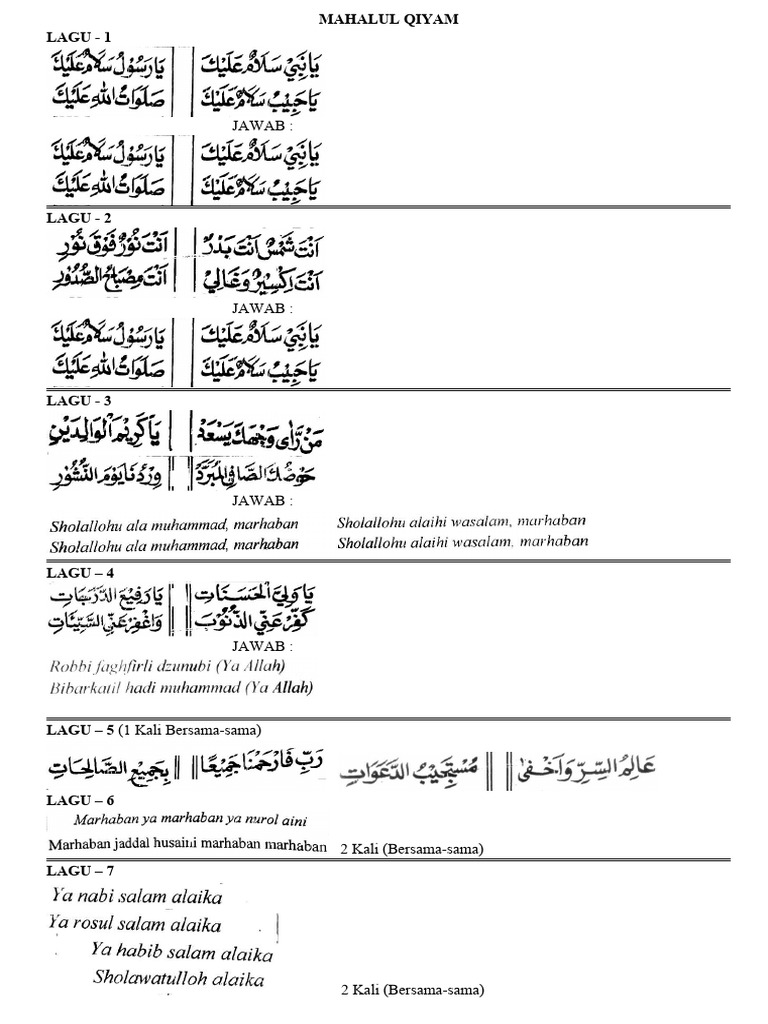 MAHALUL QIYAM
LAGU - 1
يَا نَبِيْ سَلَامٌ عَلَيْكَ يَا رَسُوْلُ سَلَامٌ عَلَيْكَ
يَا حَبِيْبُ سَلَامٌ عَلَيْكَ صَلَوَاتُ اللهِ عَلَيْكَ
JAWAB :
يَا نَبِيْ سَلَامٌ عَلَيْكَ يَا رَسُوْلُ سَلَامٌ عَلَيْكَ
يَا حَبِيْبُ سَلَامٌ عَلَيْكَ صَلَوَاتُ اللهِ عَلَيْكَ
LAGU - 2
اَنْتَ شَمْسٌ اَنْتَ بَدْرٌ اَنْتَ نُوْرٌ فَوْقَ نُوْرِ
اَنْتَ اِكْسِيْرٌ وَغَالِيْ اَنْتَ مِصْبَاحُ الصُّدُوْرِ
JAWAB :
يَا نَبِيْ سَلَامٌ عَلَيْكَ يَا رَسُوْلُ سَلَامٌ عَلَيْكَ
يَا حَبِيْبُ سَلَامٌ عَلَيْكَ صَلَوَاتُ اللهِ عَلَيْكَ
LAGU - 3
مَنْ رَّاٰى وَجْهَكَ يَسْعَدُ يَا كَرِيْمَ الْوَالِدَيْنِ
حَوْضُكَ الصَّافِى الْمُبَرَّدُ وِرْدُنَا يَوْمَ النُّشُوْرِ
JAWAB :
Sholallohu ala muhammad, marhaban Sholallohu alaihi wasalam, marhaban
Sholallohu ala muhammad, marhaban Sholallohu alaihi wasalam, marhaban
LAGU – 4
يَا وَلِيَّ الْحَسَنَاتِ يَا رَفِيْعَ الدَّرَجَاتِ
كَفِّرْ عَنِّي الذُّنُوْبَ وَاغْفِرْ عَنِّي السَّيِّئَاتِ
JAWAB :
Robbi faghfirli dzunubi (Ya Allah)
Bibarkatil hadi muhammad (Ya Allah)
LAGU – 5 (1 Kali Bersama-sama)
عَالِمُ السِّرِّ وَاَخْفٰى مُسْتَجِيْبُ الدَّعَوَاتِ
رَبِّ فَارْحَمْنَا جَمِيْعًا بِجَمِيْعِ الصَّالِحَاتِ
LAGU – 6
Marhaban ya marhaban ya nurol aini
Marhaban jaddal husaini marhaban marhaban 2 Kali (Bersama-sama)
LAGU – 7
Ya nabi salam alaika
Ya rosul salam alaika
Ya habib salam alaika
Sholawatulloh alaika
2 Kali (Bersama-sama)